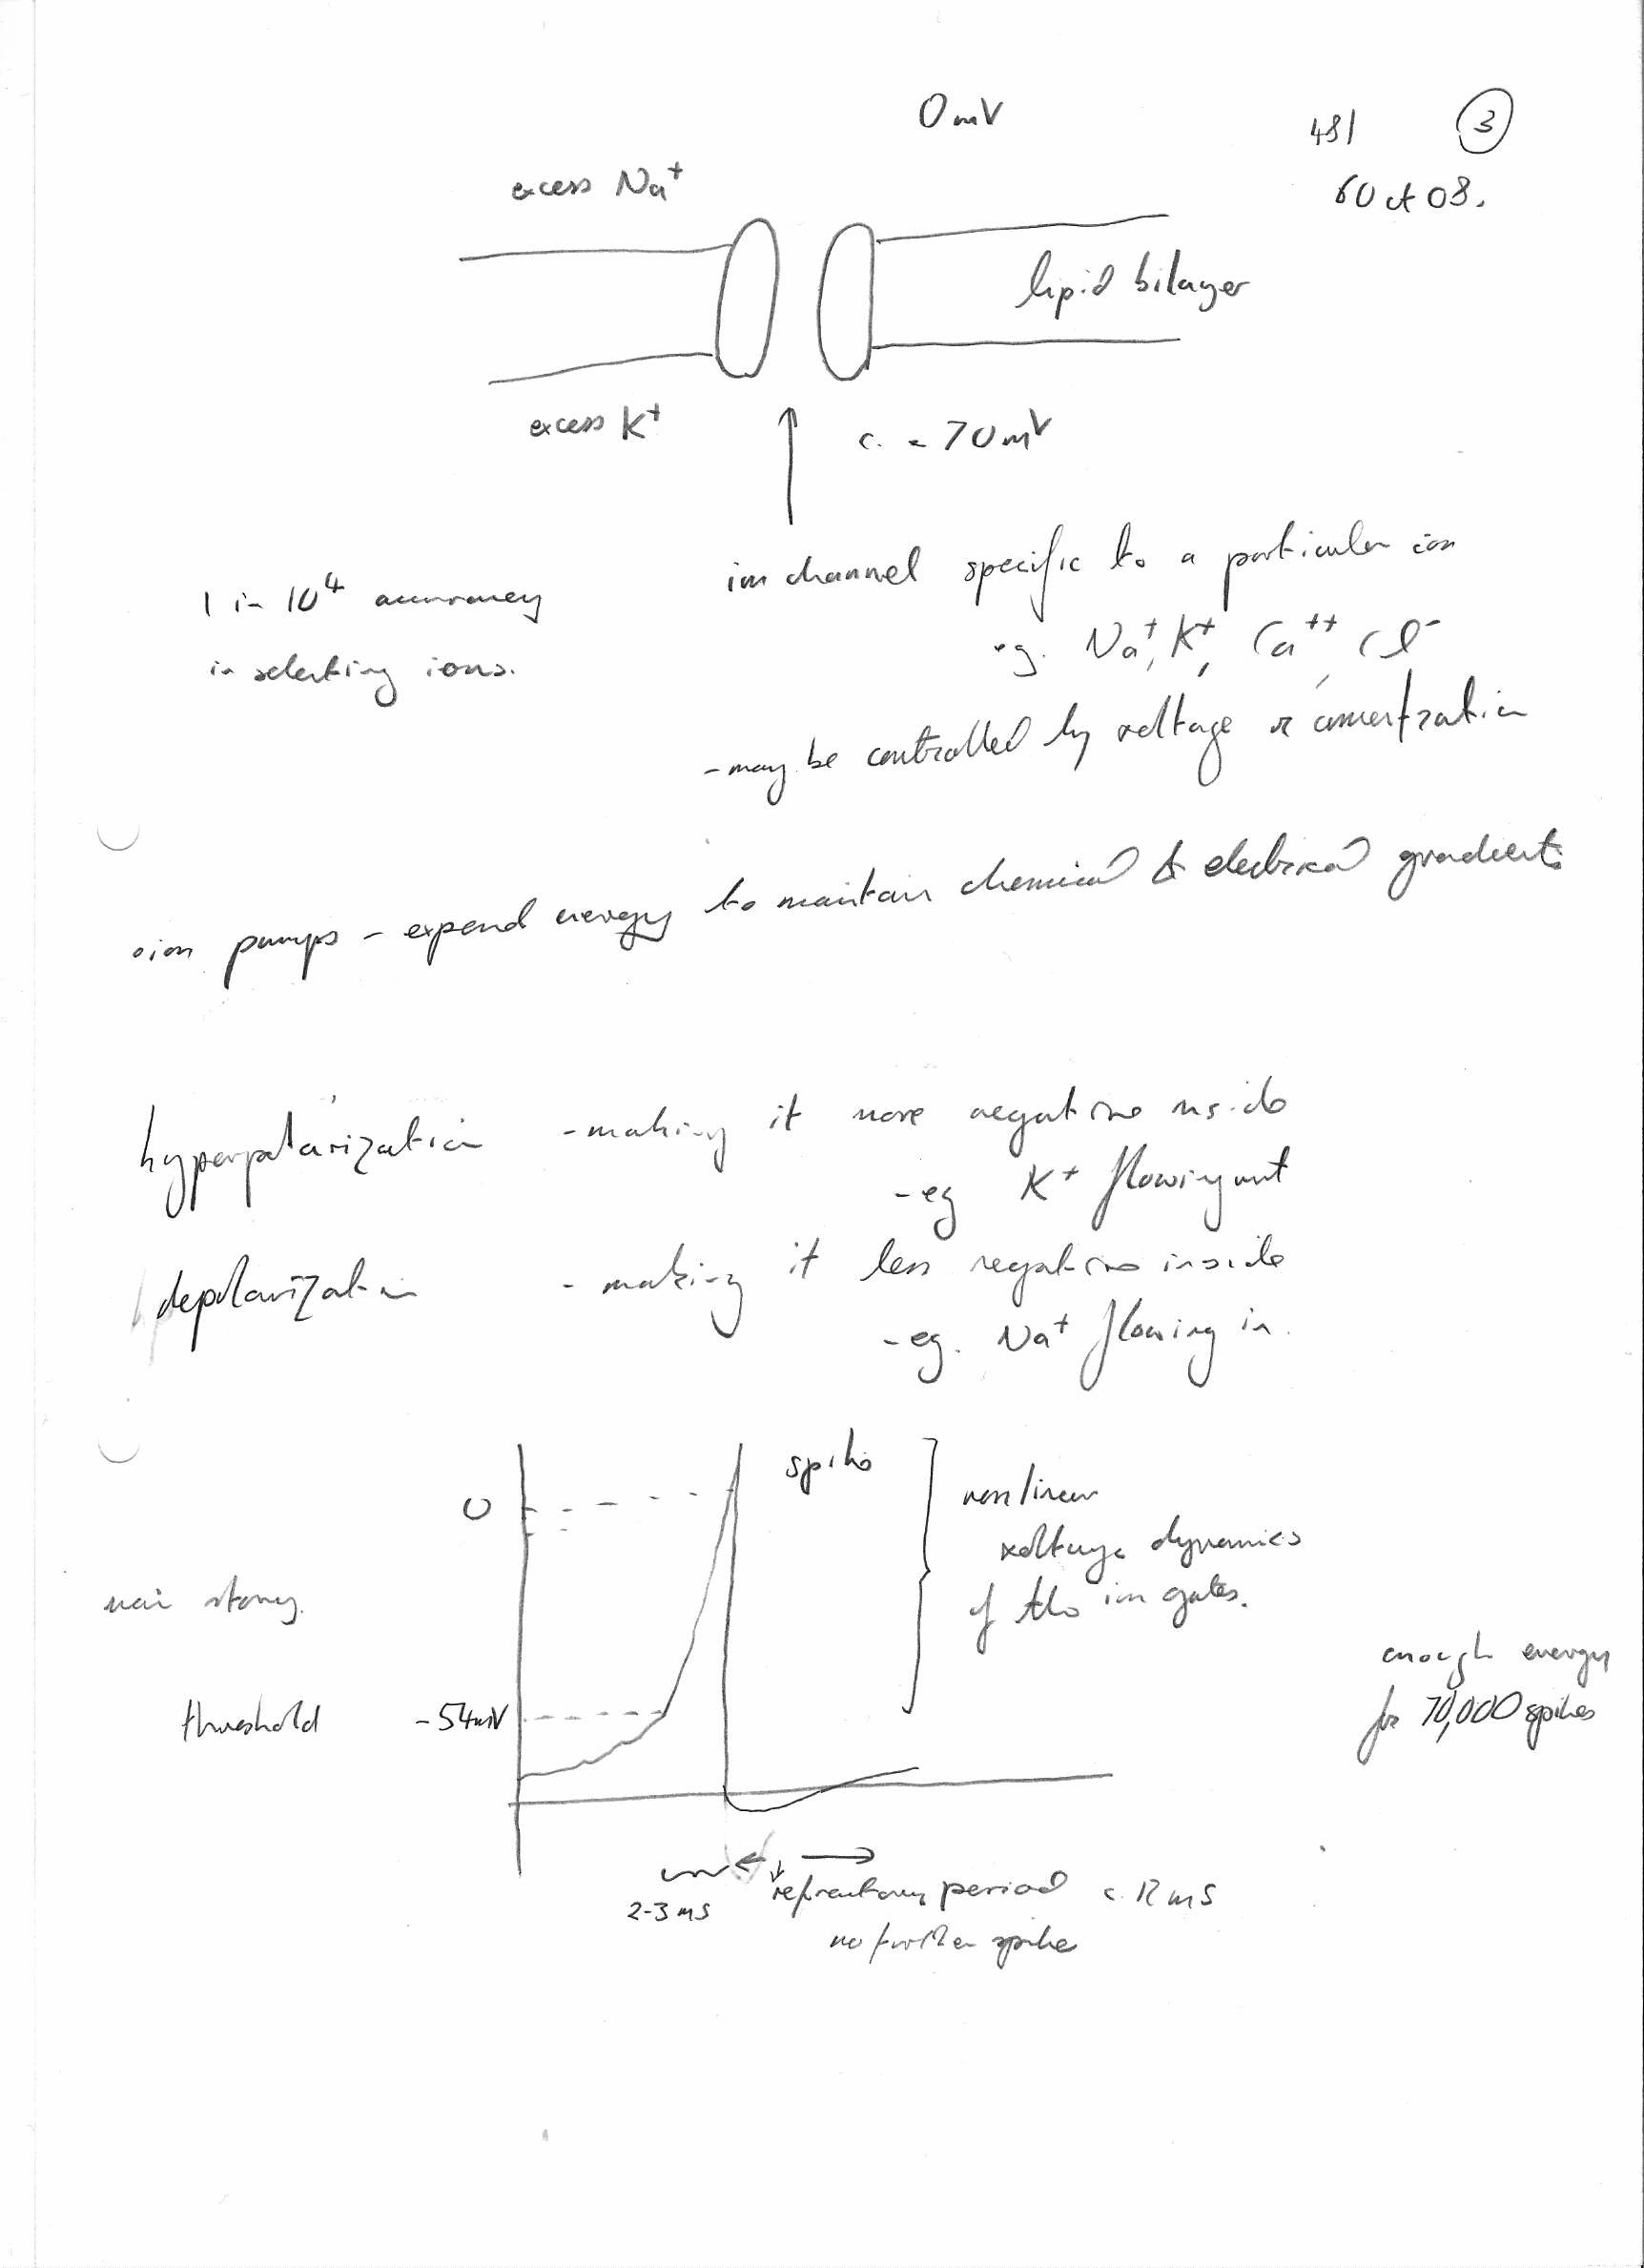 0mV
481 3
6 Oct 08.
excess Na⁺
lipid bilayer
excess K⁺
c. -70mV
ion channel specific to a particular ion
eg. Na⁺, K⁺, Ca⁺⁺, Cl⁻
1 in 10⁴ accuracy
in selecting ions.
-may be controlled by voltage or concentration
ion pumps - expend energy to maintain chemical & electrical gradients
hyperpolarization -making it more negative inside
-eg K⁺ flowing out
depolarization - making it less negative inside
-eg. Na⁺ flowing in.
spike
0
nonlinear
voltage dynamics
of the ion gates.
story.
enough energy
for 70,000 spikes
threshold -54mV
2-3 ms
refractory period c. 12 ms
no further spike